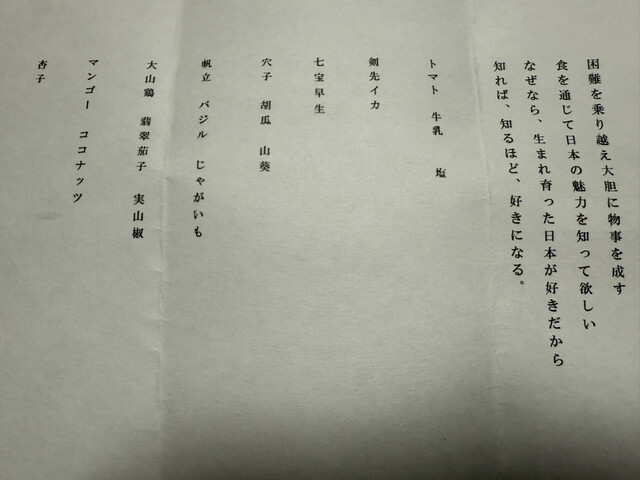 困難を乗り越え大胆に物事を成す
食を通じて日本の魅力を知って欲しい
なぜなら、生まれ育った日本が好きだから
知れば、知るほど、好きになる。
トマト 牛乳 塩
剣先イカ
七宝早生
穴子 胡瓜 山葵
帆立 バジル じゃがいも
大山鶏 翡翠茄子 実山椒
マンゴー ココナッツ
杏子